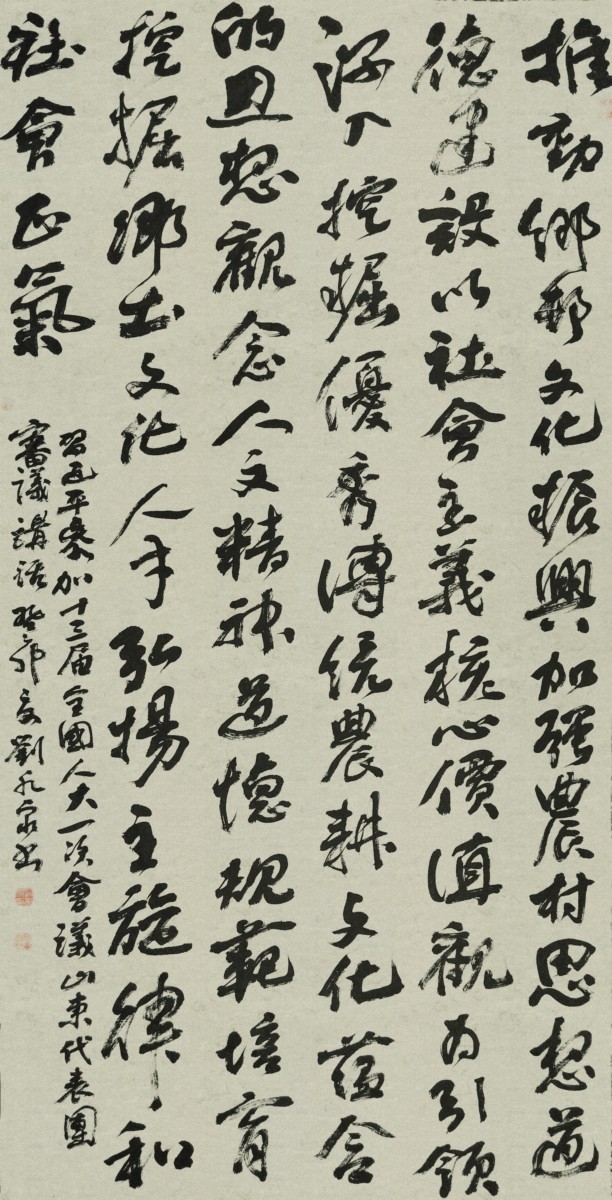 推動鄉邨文化振興加强農村思想道
德建設以社會主義核心價值觀為引領
深入挖掘優秀傳統農耕文化蘊含
的思想觀念人文精神道德規範培育
挖掘鄉土文化人才弘揚主旋律和
社會正氣
習近平參加十三届全國人大一次會議山東代表團
審議講話癸卯夏劉書